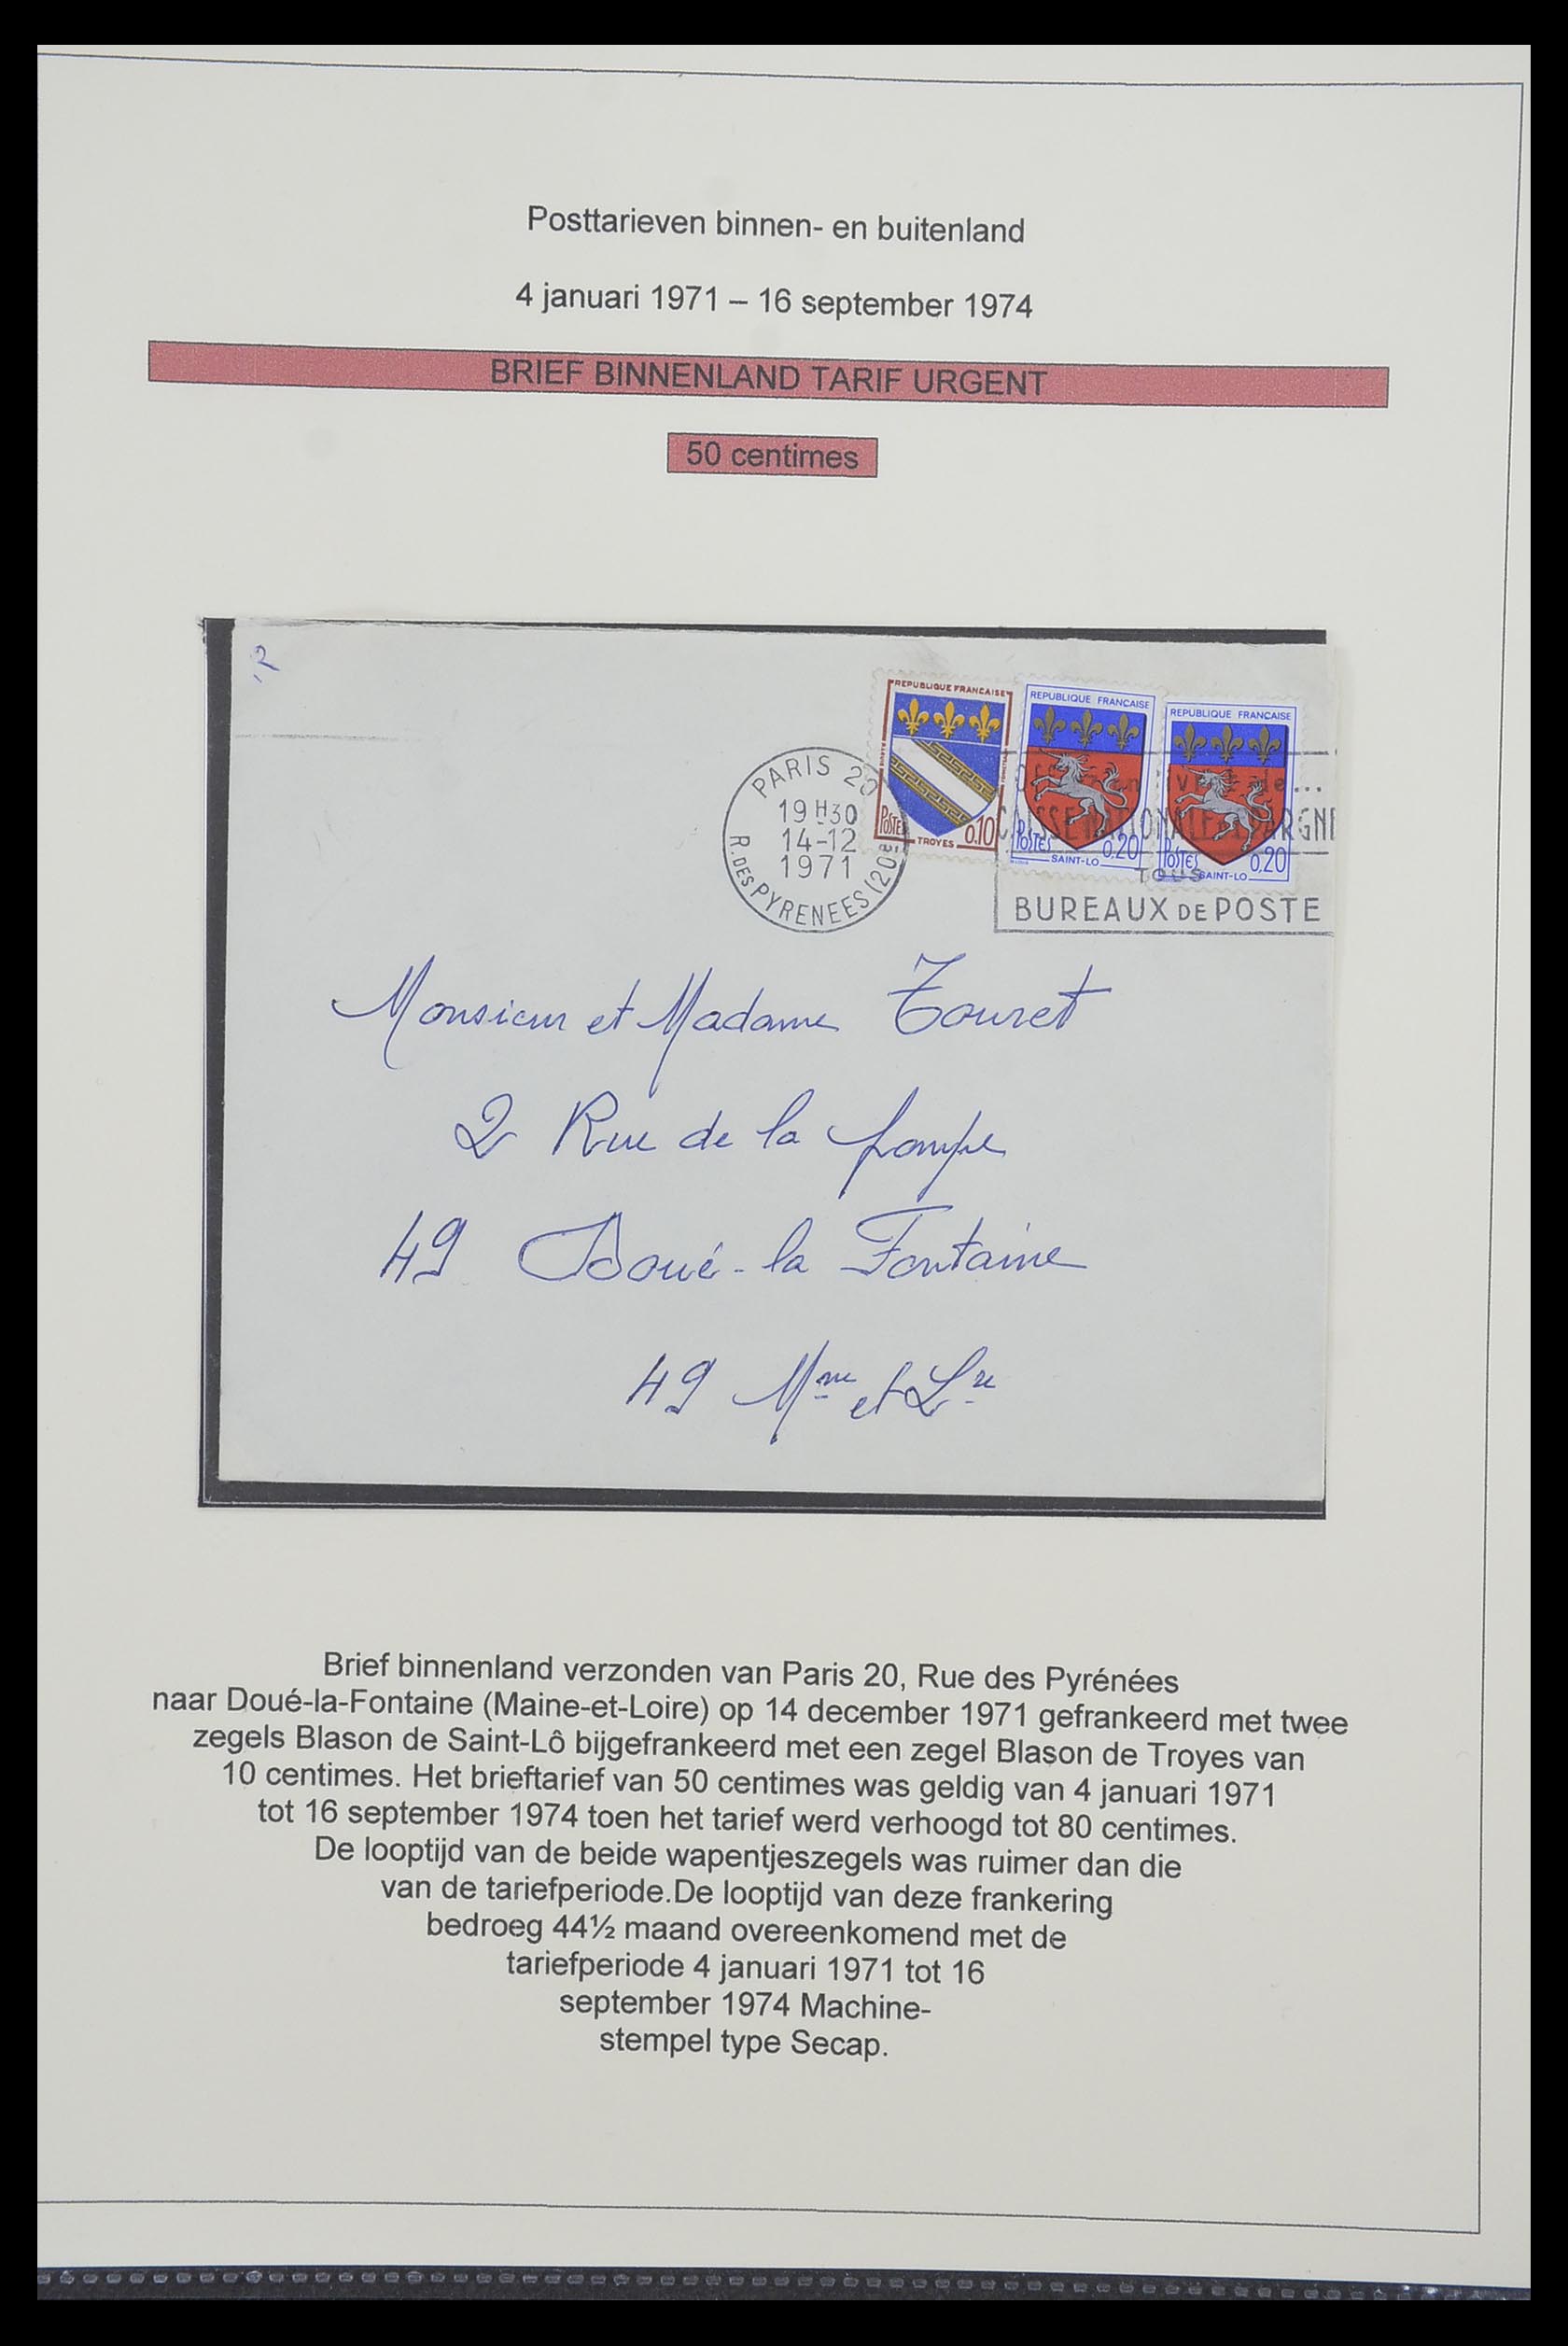 Posttarieven binnen- en buitenland
4 januari 1971 – 16 september 1974
BRIEF BINNENLAND TARIF URGENT
50 centimes
REPUBLIQUE FRANCAISE
POSTES
0,10
TROYES
REPUBLIQUE FRANCAISE
POSTES
0,20
SAINT-LO
REPUBLIQUE FRANCAISE
POSTES
0,20
SAINT-LO
PARIS 20
19H30
14-12
1971
R. DES PYRENEES (20)
CAISSE NATIONALE EPARGNE
TOUS
BUREAUX DE POSTE
Monsieur et Madame Touret
2 Rue de la pompe
49 Doué-la Fontaine
49 Mne et Lre
Brief binnenland verzonden van Paris 20, Rue des Pyrénées
naar Doué-la-Fontaine (Maine-et-Loire) op 14 december 1971 gefrankeerd met twee
zegels Blason de Saint-Lô bijgefrankeerd met een zegel Blason de Troyes van
10 centimes. Het brieftarief van 50 centimes was geldig van 4 januari 1971
tot 16 september 1974 toen het tarief werd verhoogd tot 80 centimes.
De looptijd van de beide wapentjeszegels was ruimer dan die
van de tariefperiode.De looptijd van deze frankering
bedroeg 44½ maand overeenkomend met de
tariefperiode 4 januari 1971 tot 16
september 1974 Machine-
stempel type Secap.